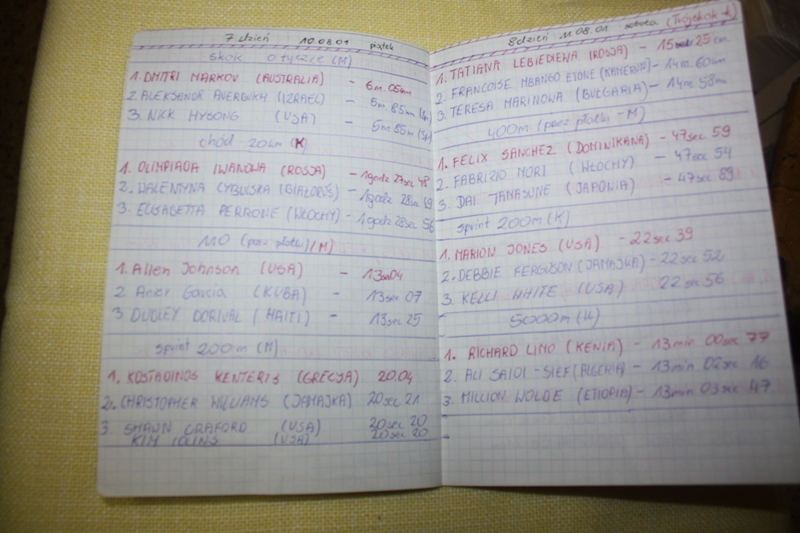 7 dzień 10.08.01 piątek
skok o tyczce (M)
1. DMITRI MARKOV (AUSTRALIA) - 6m 05cm
2. ALEKSANDR AVERBUKH (IZRAEL) - 5m 85cm
3. NICK HYSONG (USA) - 5m 85cm
chód 20km (K)
1. OLIMPIADA IWANOWA (ROSJA) - 1godz 27sec 48
2. WALENTYNA CYBULSKA (BIAŁORUŚ) - 1godz 28sec 49
3. ELISABETTA PERRONE (WŁOCHY) - 1godz 28sec 56
110 (przez płotki) (M)
1. Allen Johnson (USA) - 13sec 04
2. Anier Garcia (KUBA) - 13sec 07
3. DUDLEY DORIVAL (HAITI) - 13sec 25
sprint 200m (M)
1. KOSTADINOS KENTERIS (GRECJA) 20.04
2. CHRISTOPHER WILLIAMS (JAMAJKA) 20sec 21
3. SHAWN CRAFORD (USA) 20sec 20
KIM COLINS (USA) 20sec 20
8 dzień 11.08.01 sobota (Trójskok -K)
1. TATIANA LEBIEDIEWA (ROSJA) - 15m 25cm
2. FRANCOISE MBANGO ETONE (KAMERUN) - 14m 60cm
3. TERESA MARINOWA (BUŁGARIA) - 14m 58cm
400m (przez płotki -M)
1. FELIX SANCHEZ (DOMINIKANA) - 47sec 59
2. FABRIZIO MORI (WŁOCHY) - 47sec 54
3. DAI TAMASUNE (JAPONIA) - 47sec 89
sprint 200m (K)
1. MARION JONES (USA) - 22sec 39
2. DEBBIE FERGUSON (JAMAJKA) - 22sec 52
3. KELLI WHITE (USA) 22sec 56
5000m (M)
1. RICHARD LIMO (KENIA) - 13min 00sec 77
2. ALI SAIDI-SIEF (ALGERIA) - 13min 02sec 16
3. MILLION WOLDE (ETIOPIA) - 13min 03sec 47